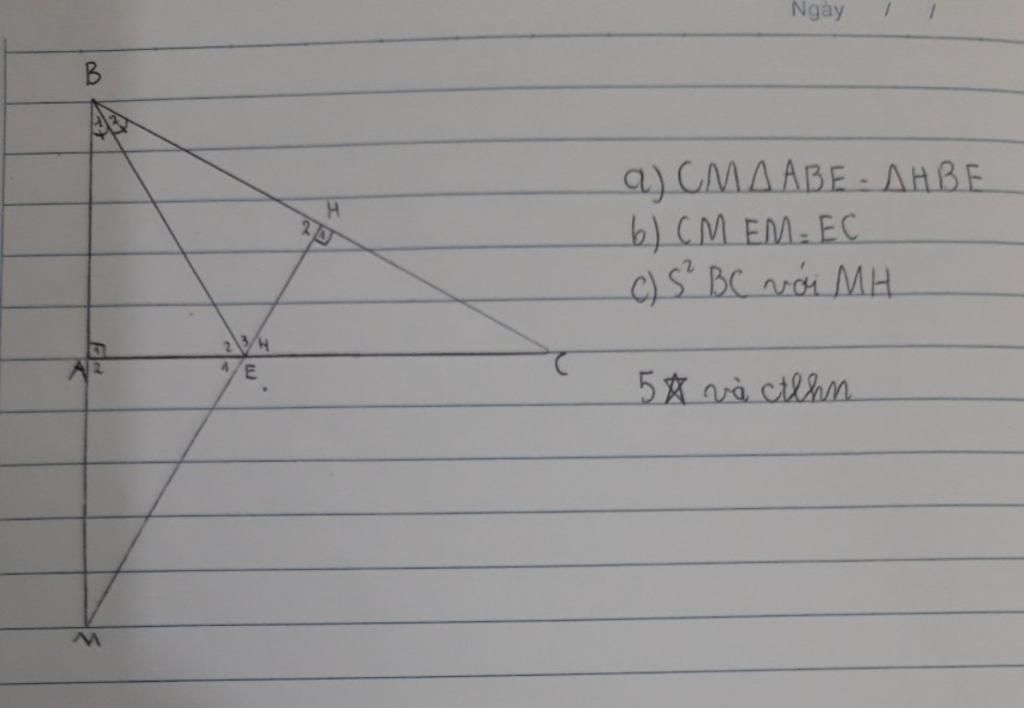 Ngày / /
B
1 2
H
2 1
a) CM Δ ABE = ΔHBE
b) CM EM = EC
c) S² BC với MH
1 2 3 4
A 2 1 E C
5☆ và ctlhn
M